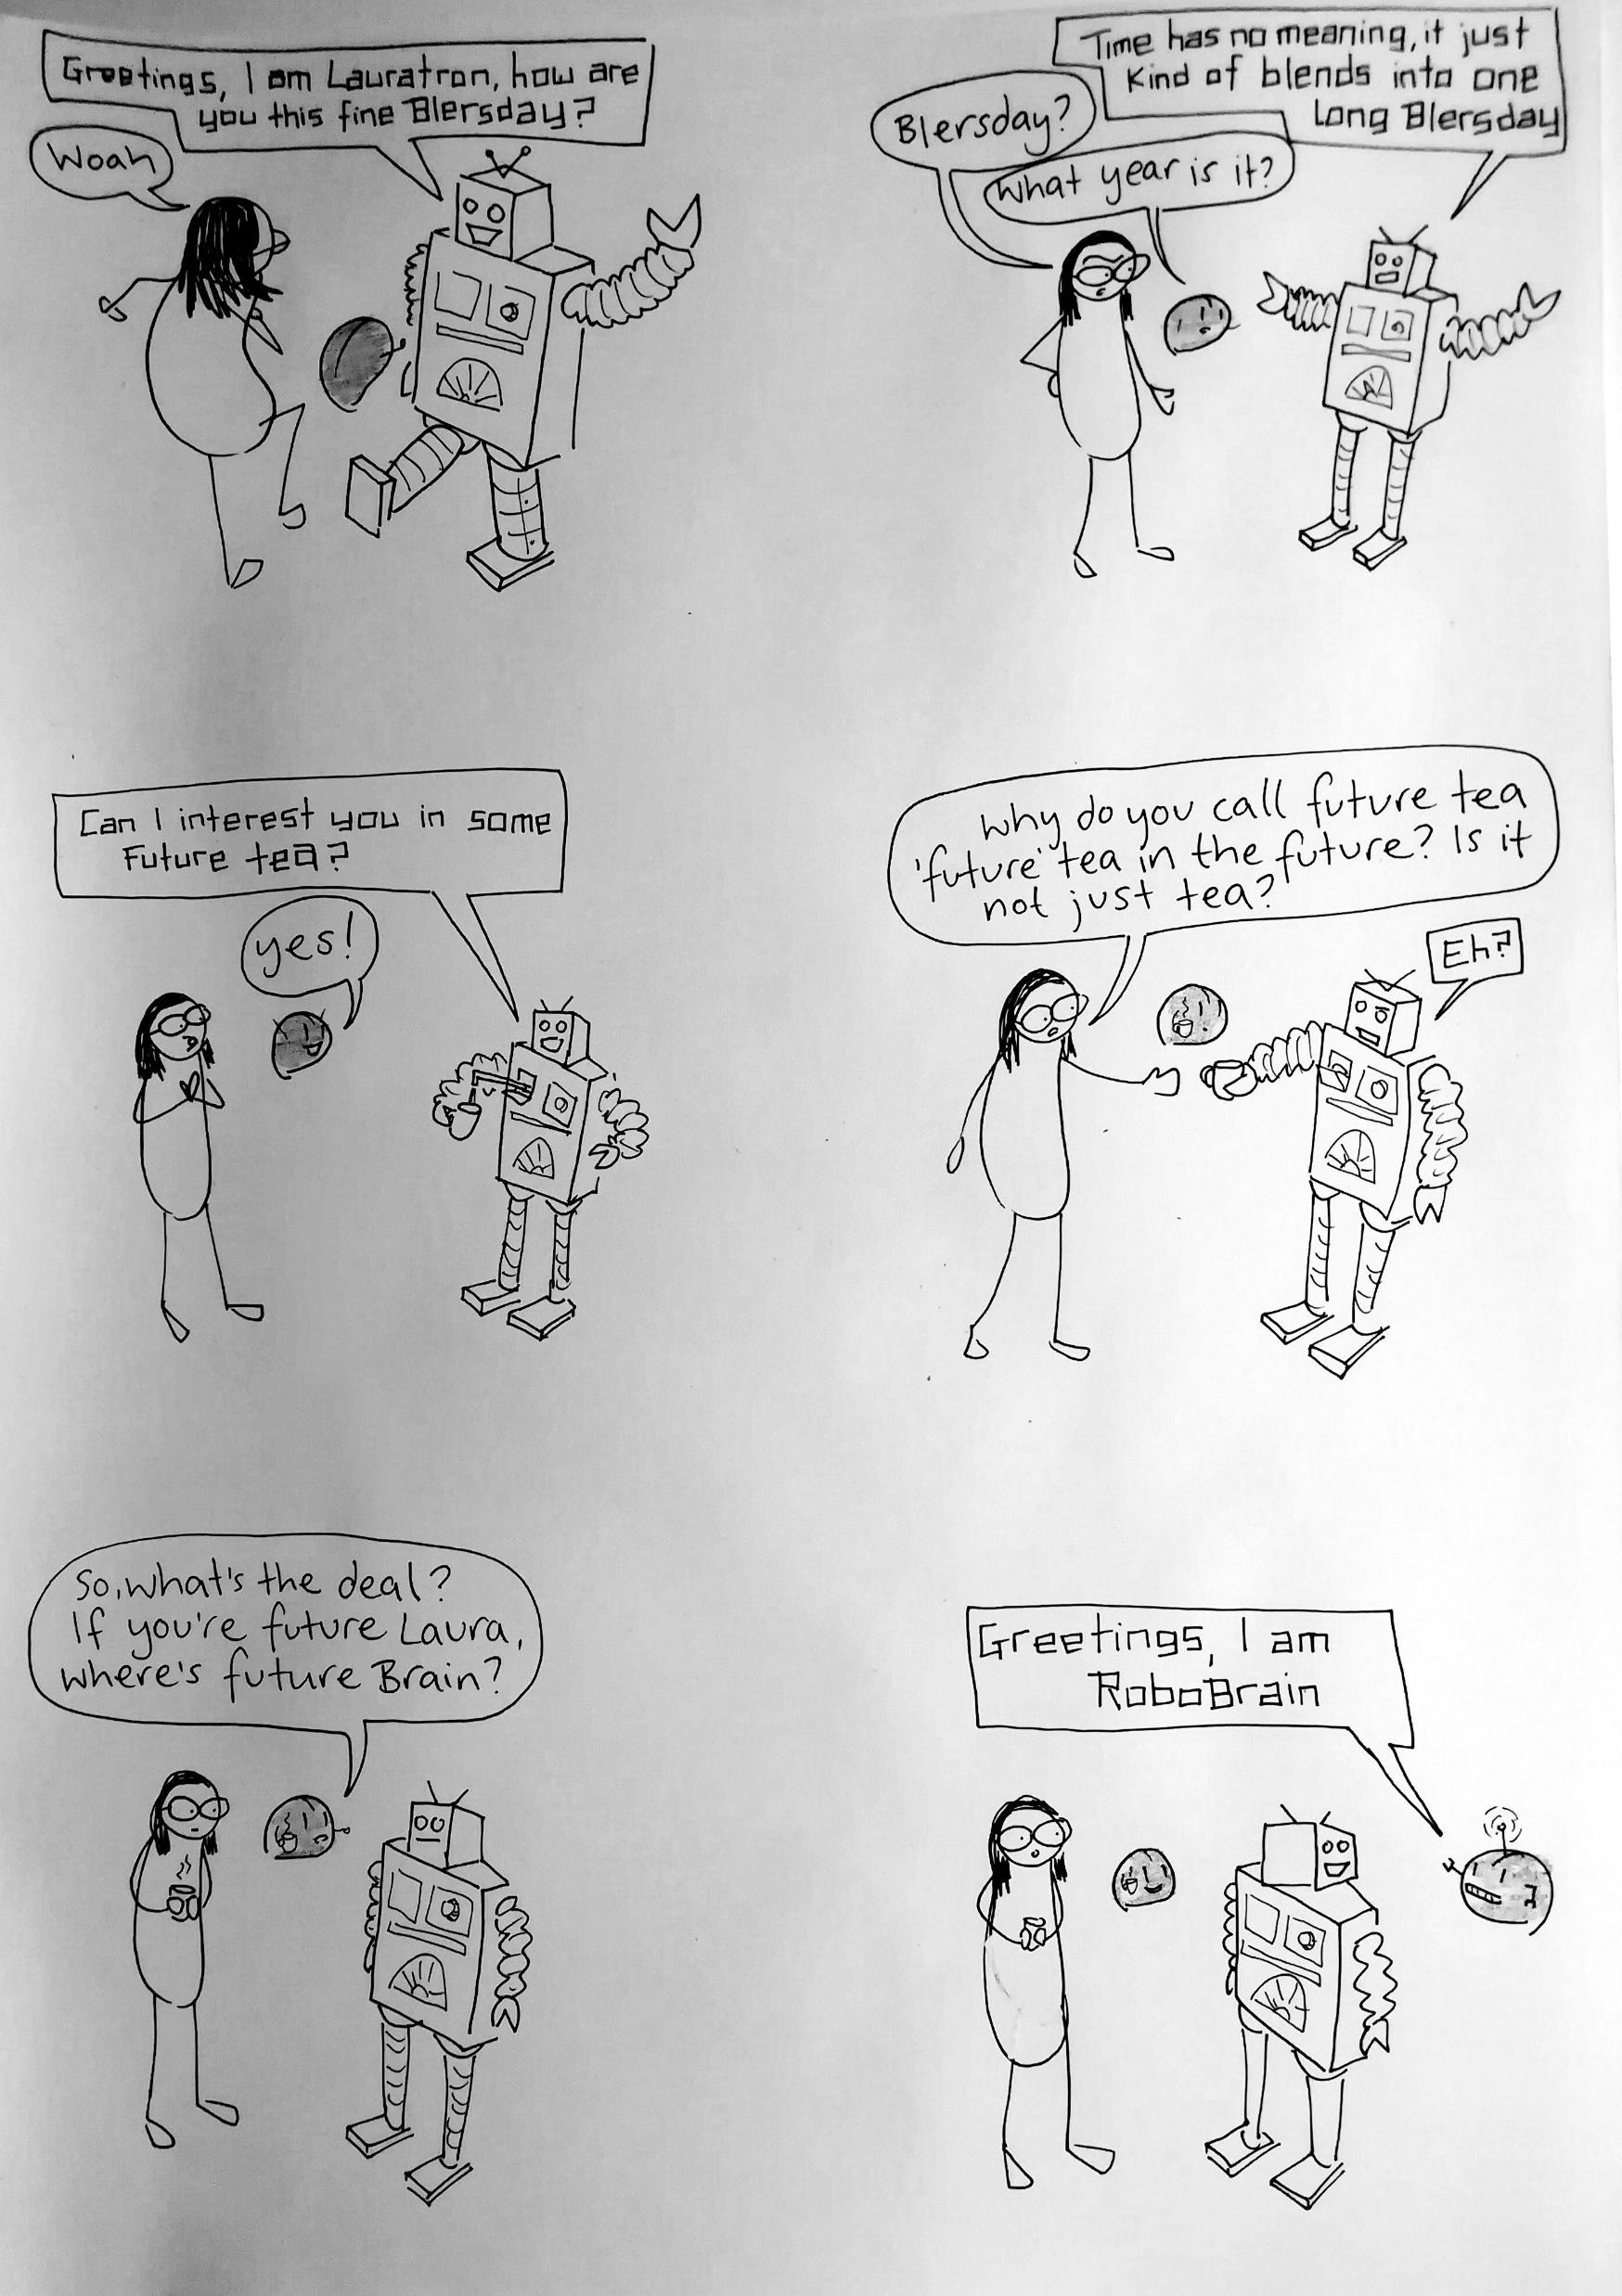 Greetings, I am Lauratron, how are
you this fine Blersday?
Woah
Time has no meaning, it just
kind of blends into one
long Blersday
Blersday?
What year is it?
Can I interest you in some
Future tea?
yes!
Why do you call future tea
'future' tea in the future? Is it
not just tea?
Eh?
So, what's the deal?
If you're future Laura,
where's future Brain?
Greetings, I am
RoboBrain